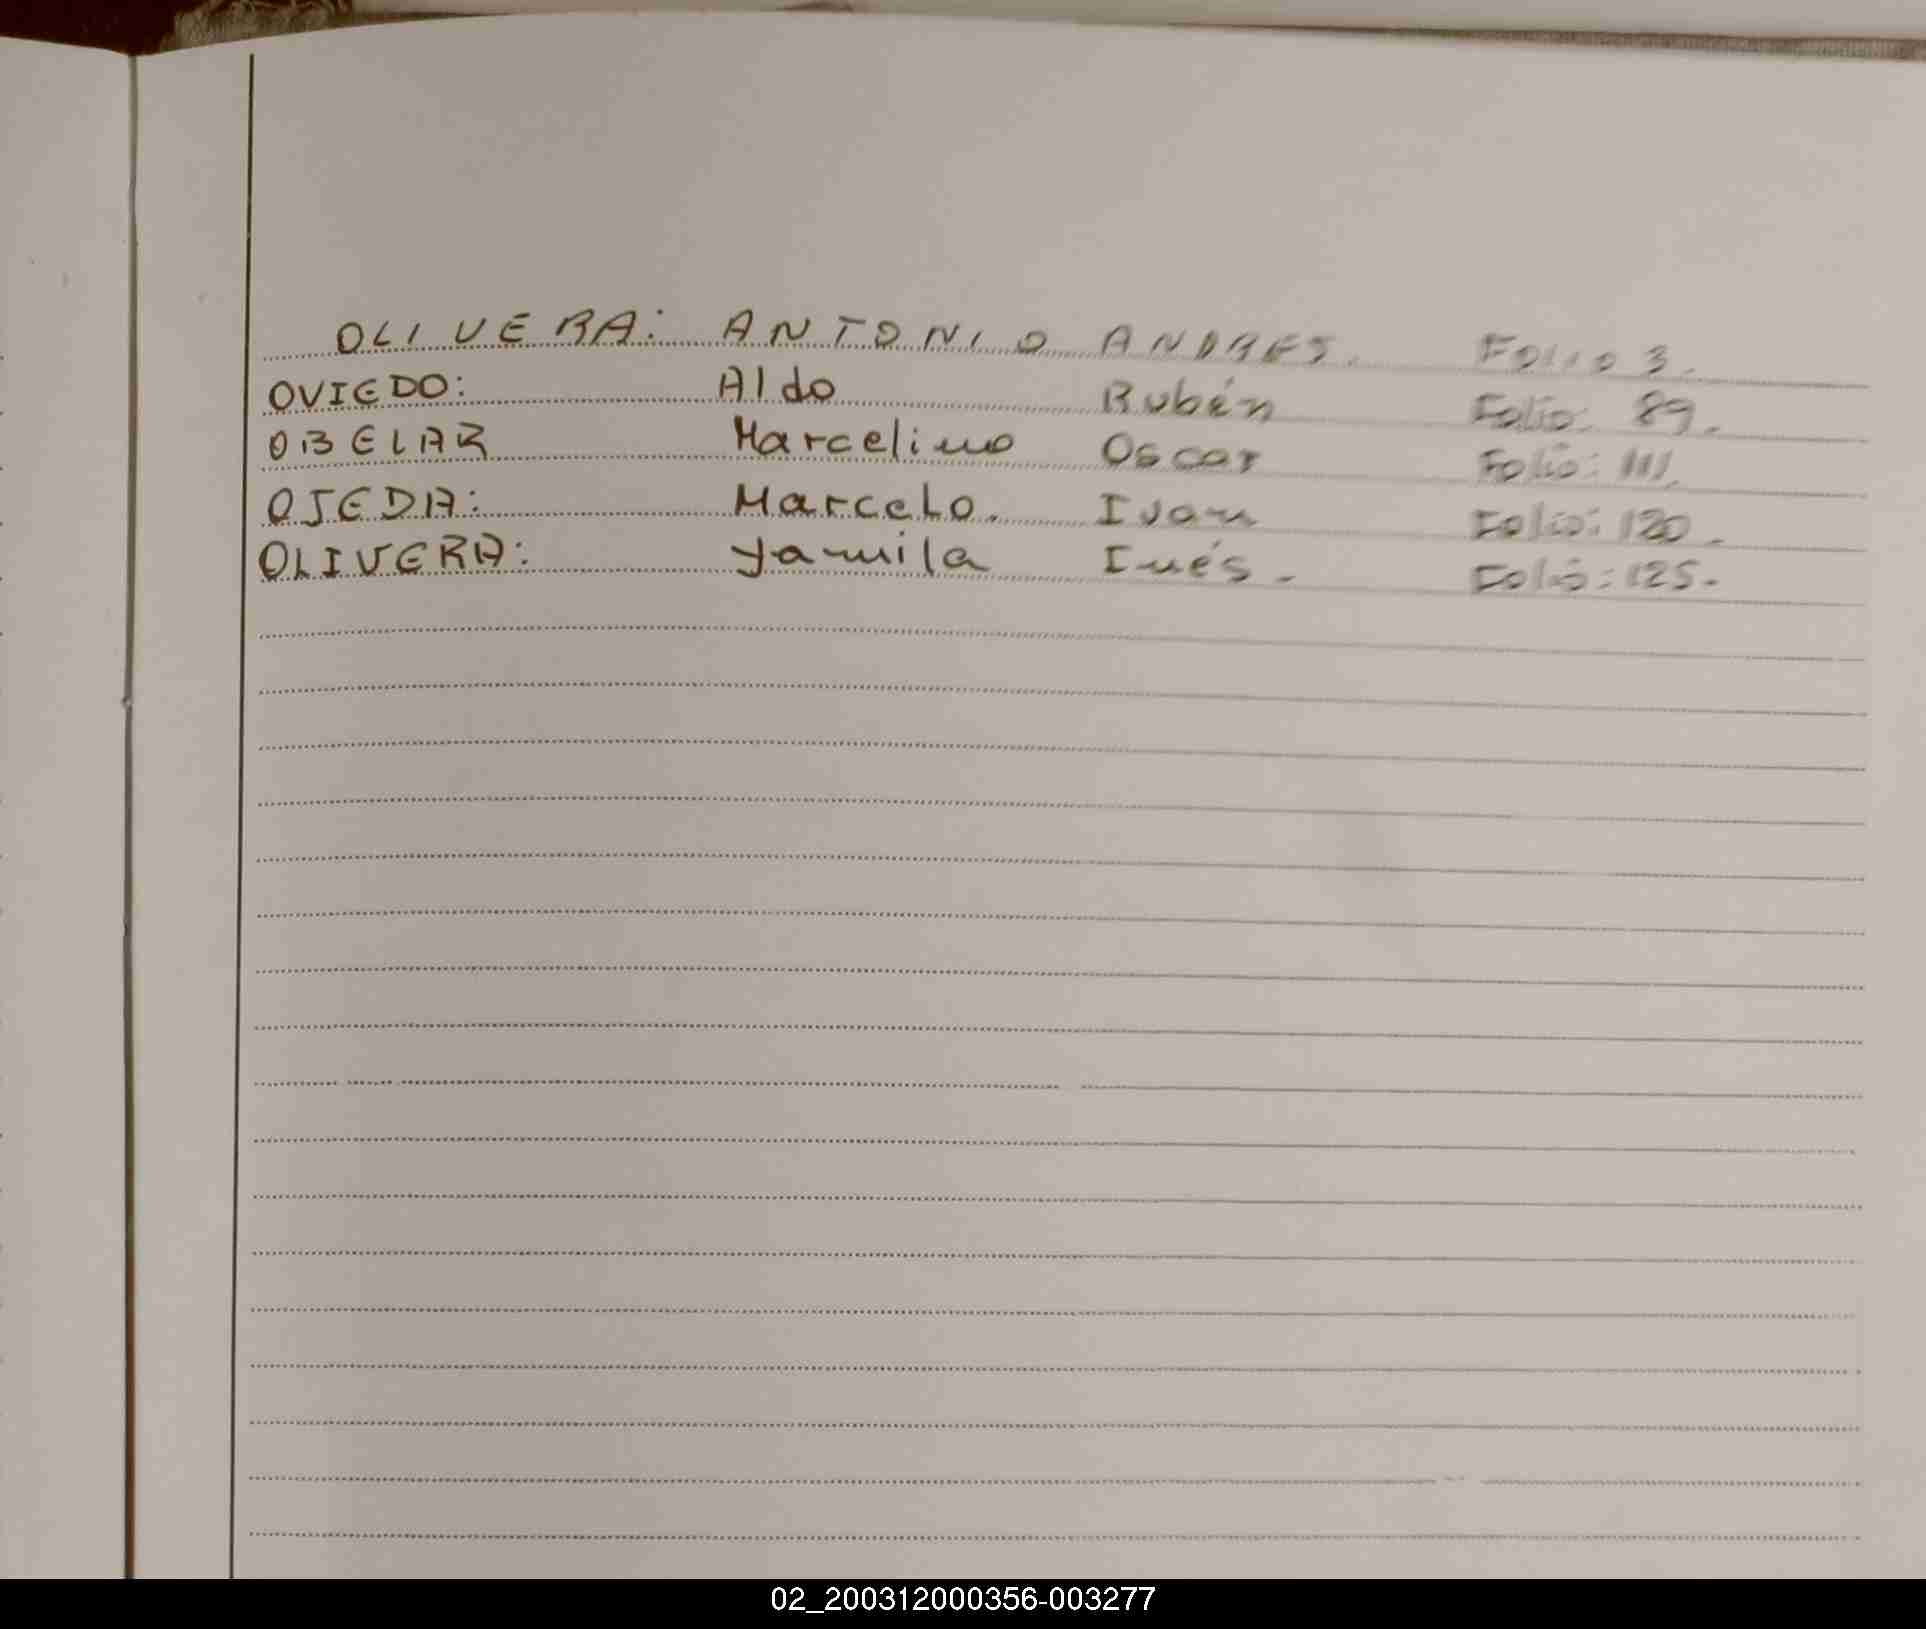 OLIVERA: ANTONIO ANDRES. FOLIO 3.
OVIEDO: Aldo Rubén Folio: 89.
OBELAR Marcelino Oscar Folio: 111.
OJEDA: Marcelo. Ivan Folio: 120.
OLIVERA: Yamila Inés. Folio: 125.
02_200312000356-003277